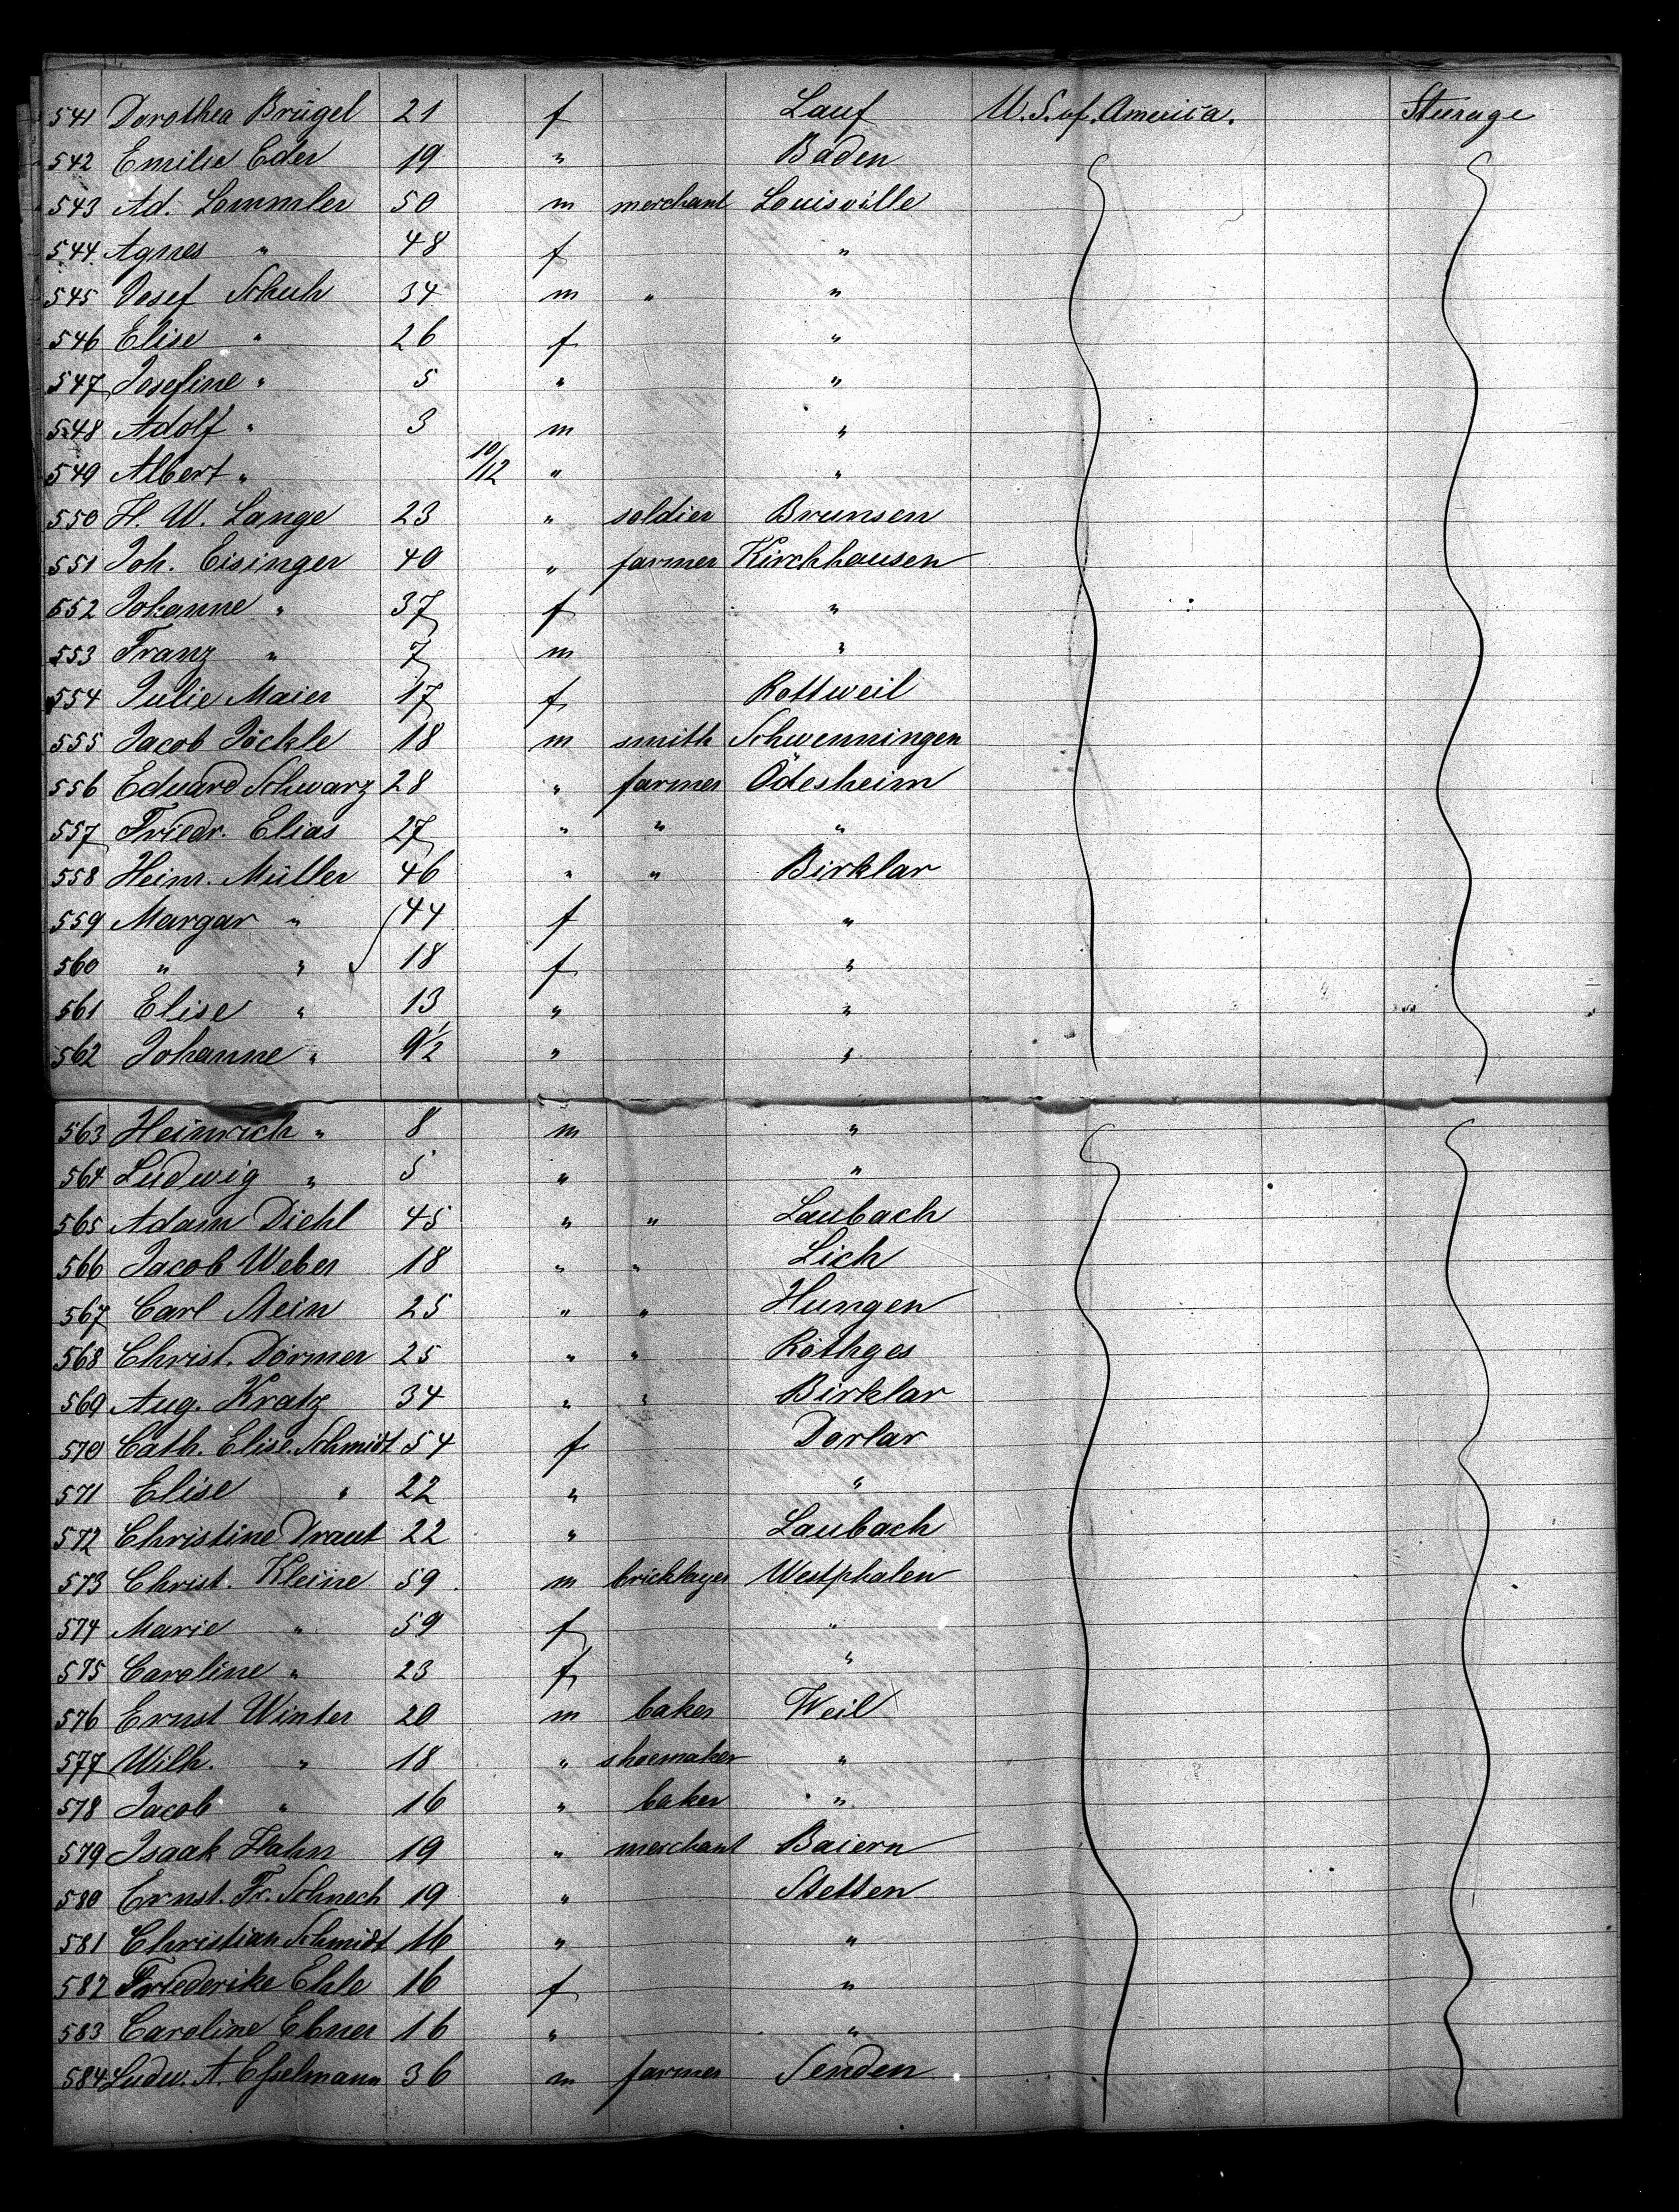 541 Dorothea Brügel 21 f Lauf U. S. of. America. Steerage
542 Emilie Eder 19 " Baden
543 Ad. Lommler 50 m merchant Louisville
544 Agnes " 48 f "
545 Josef Schuh 34 m " "
546 Elise " 26 f "
547 Josefine " 5 " "
548 Adolf " 3 m "
549 Albert " 10/12 " "
550 H. W. Lange 23 " soldier Brunsen
551 Joh. Eisinger 40 " farmer Kirchhausen
552 Johanne " 37 f "
553 Franz " 7 m "
554 Julie Maier 17 f Rottweil
555 Jacob Jöckle 18 m smith Schwenningen
556 Eduard Schwarz 28 " farmer Ödesheim
557 Friedr. Elias 27 " " "
558 Heinr. Müller 46 " " Birklar
559 Margar " 44 f "
560 " " 18 f "
561 Elise " 13 " "
562 Johanne " 9 1/2 " "
563 Heinrich " 8 m "
564 Ludwig " 5 " "
565 Adam Diehl 45 " " Laubach
566 Jacob Weber 18 " " Lich
567 Carl Stein 25 " " Hungen
568 Christ. Dörmer 25 " " Röthges
569 Aug. Kratz 34 " " Birklar
570 Cath. Elise. Schmidt 54 f Dorlar
571 Elise " 22 " "
572 Christine Draut 22 " Laubach
573 Christ. Kleine 59 m bricklayer Westphalen
574 Marie " 59 f "
575 Caroline " 23 f "
576 Ernst Winter 20 m baker Weil
577 Wilh. " 18 " shoemaker "
578 Jacob " 16 " baker "
579 Isaak Hahn 19 " merchant Baiern
580 Ernst. Fr. Schnech 19 " Stetten
581 Christian Schmidt 16 " "
582 Friederike Ehle 16 f "
583 Caroline Ebner 16 " "
584 Ludw. A. Esselmann 36 m farmer Senden